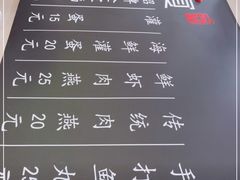 灌蛋 15元
海鲜灌蛋 20元
鲜虾肉燕 25元
传统肉燕 20元
手打鱼丸 25